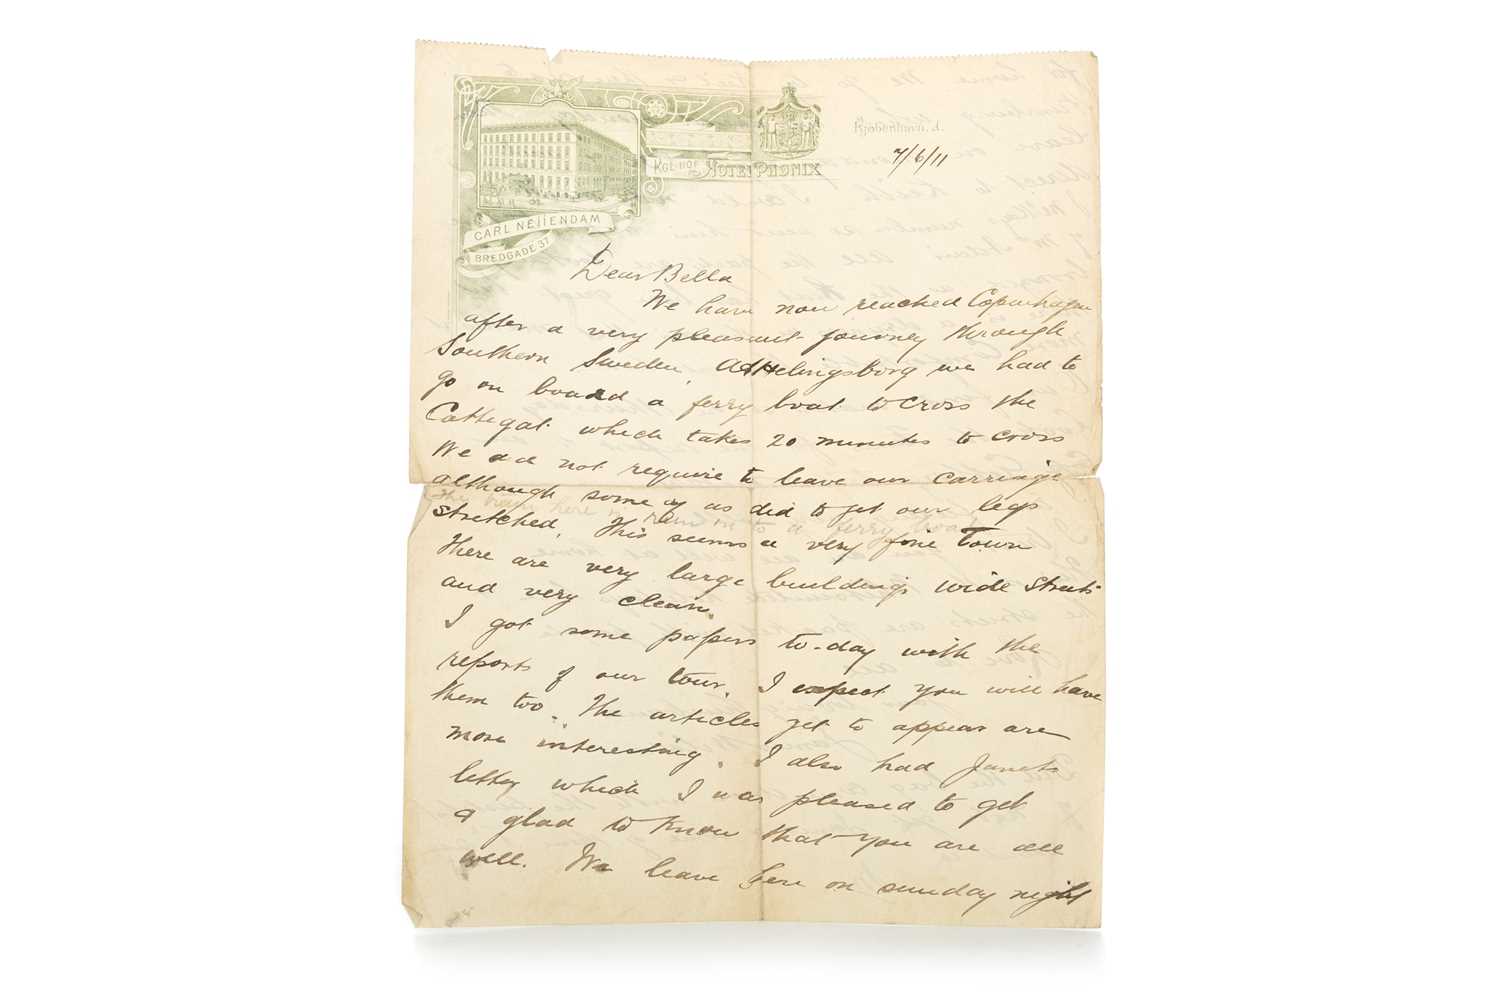 Kjøbenhavn, d.
7/6/11
KGL. HOF
HOTEL PHØNIX
CARL NEIIENDAM
BREDGADE 37
Dear Bella
We have now reached Copenhagen
after a very pleasant journey through
Southern Sweden. At Helingsborg we had to
go on board a ferry boat to cross the
Cattegat which takes 20 minutes to cross
We did not require to leave our carriage
although some of us did to get our legs
The train here is run on to a ferry boat
stretched. This seems a very fine Town
There are very large buildings wide streets
and very clean.
I got some papers to-day with the
reports of our tour. I expect you will have
them too. The articles yet to appear are
more interesting. I also had Janets
letter which I was pleased to get
& glad to know that you are all
well. We leave here on sunday night